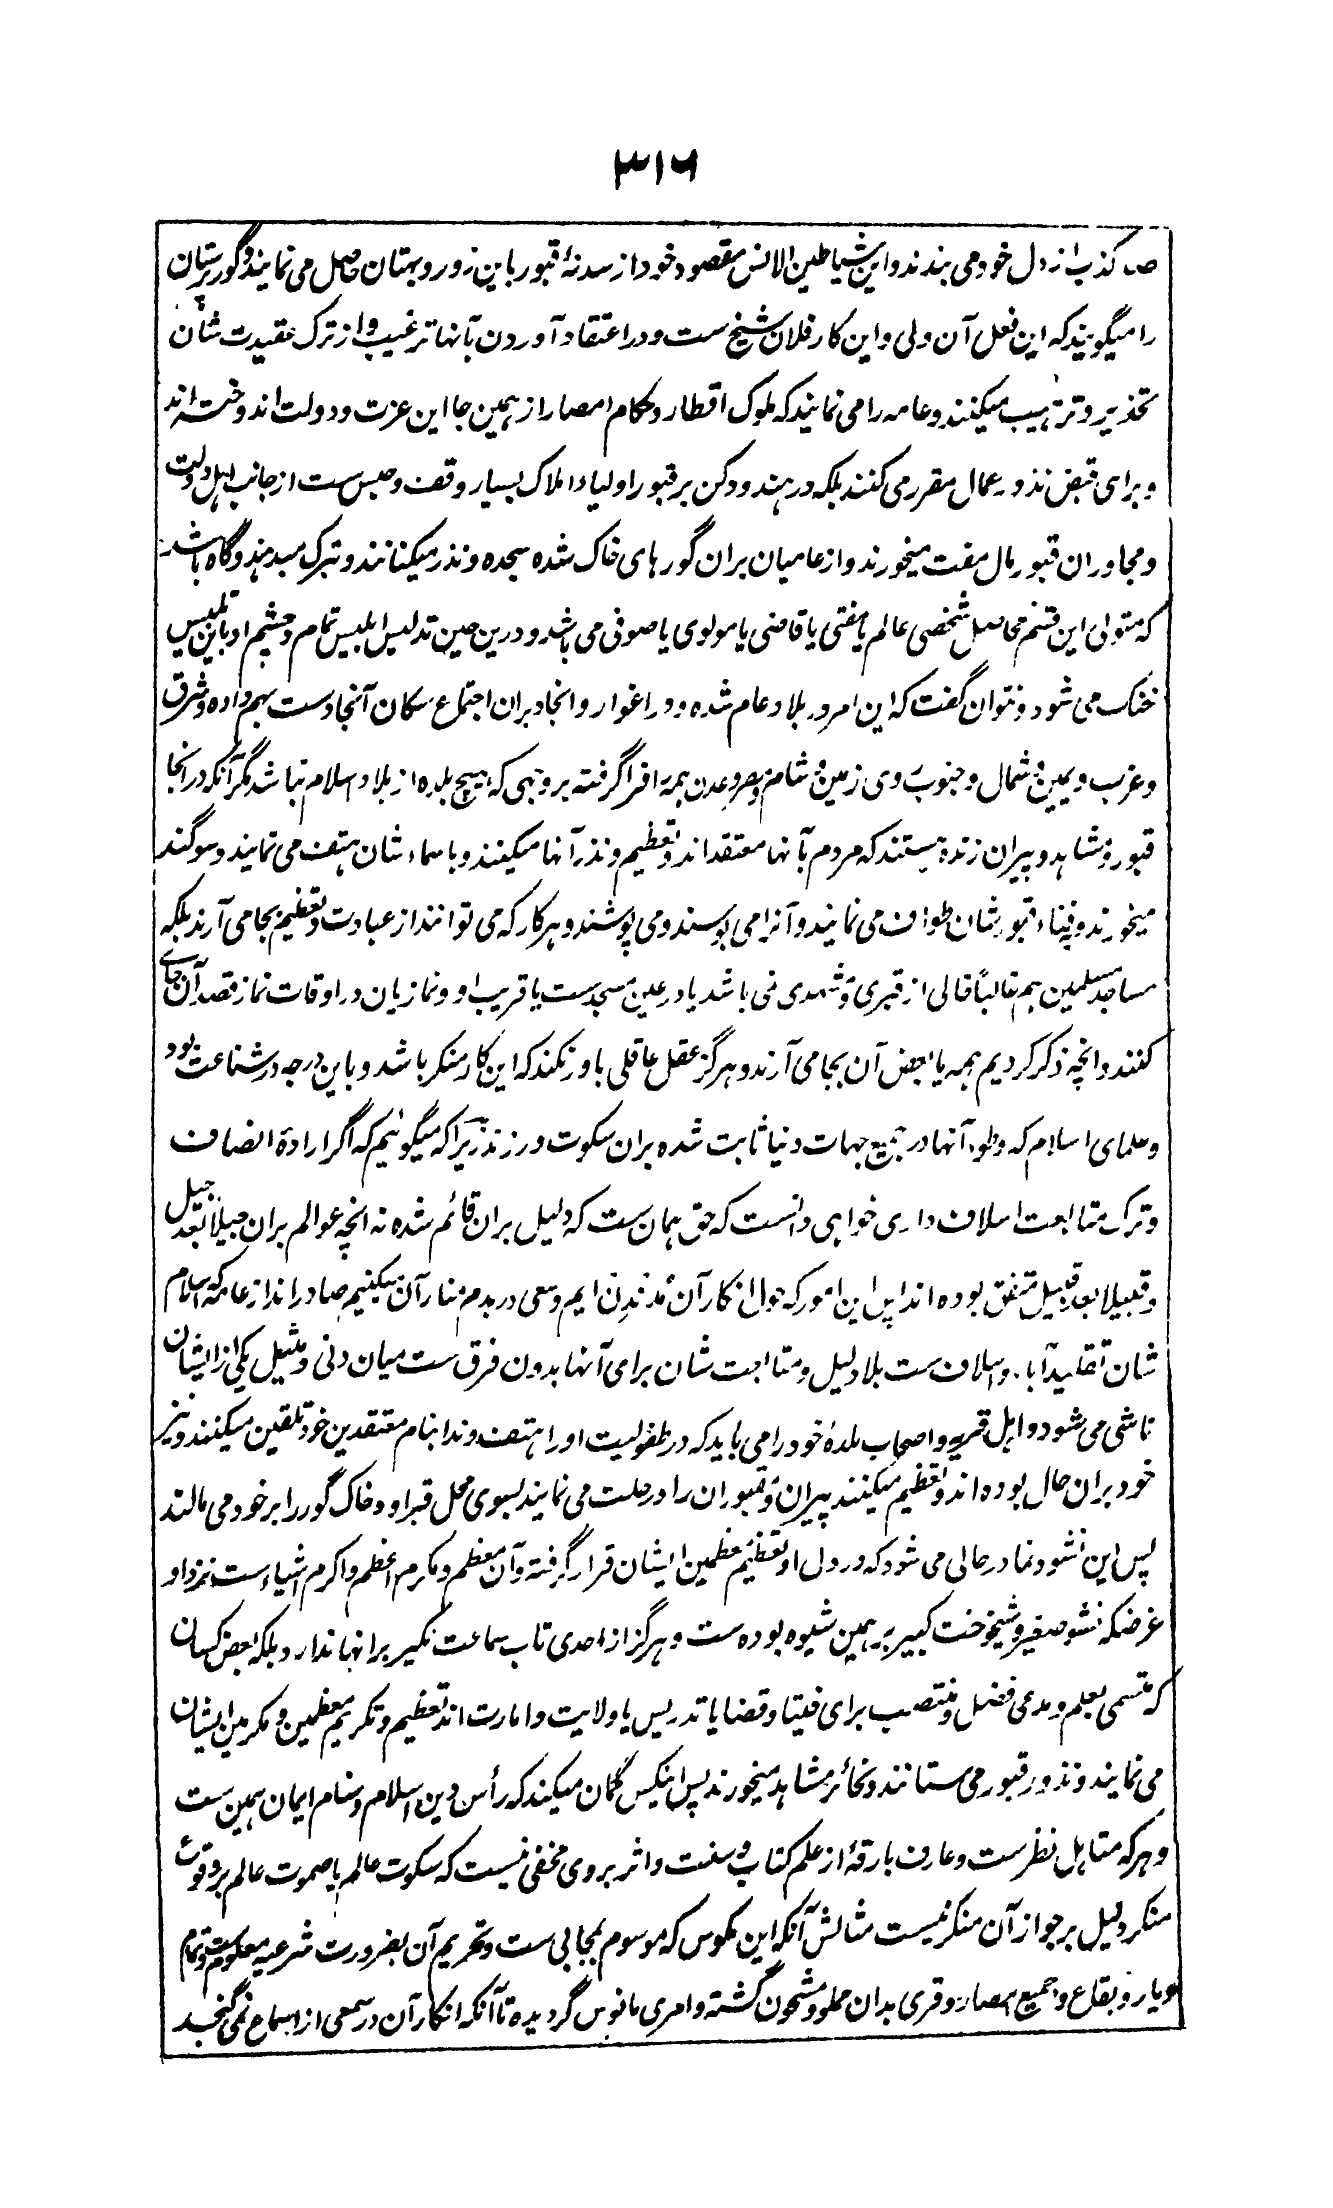 ۳۱۶
صد کذب از دل خود می بندند و این شیاطین الانس مقصود خود از سدنهٔ قبور باین زور و بهتان حاصل می نمایند و گورپرستان
را میگویند که این فعل آن ولی و این کار فلان شیخ ست و در اعتقاد آوردن بآنها ترغیب و از ترک عقیدت شان
تحذیر و ترهیب میکنند و عامه را می نمایند که ملوک اقطار و حکام امصار از همین جا این عزت و دولت اندوخته اند
و برای قبض نذور عمال مقرر می کنند بلکه در هند و دکن بر قبور اولیاء املاک بسیار وقف و حبس ست از جانب اهل دولت
و مجاوران قبور مال مفت میخورند و از عامیان بران گورهای خاک شده سجده و نذر میکنانند و تبرک میدهند و گاه باشد
که متولی این قسم محاصل شخصی عالم یا مفتی یا قاضی یا مولوی یا صوفی می باشد و درین حین تدلیس ابلیس تمام و چشم او باین تلبیس
خنک می شود و نتوان گفت که این امر در بلاد عام شده و در اغوار و انجاد بران اجتماع سکان آنجا دست بهم داده و شرق
و غرب و یمین و شمال و جنوب روی زمین و شام و مصر و عدن همه را فراگرفته بروجهی که هیچ بلده از بلاد اسلام نباشد مگر آنکه در انجا
قبور و مشاهد و پیران زنده هستند که مردم بآنها معتقد اند و تعظیم و نذر آنها میکنند و باسماء شان هتف می نمایند و سوگند
میخورند و بفناء قبور شان طواف می نمایند و آنرا می بوسند و می پوشند و هر کار که می توانند از عبادت و تعظیم بجا می آرند بلکه
مساجد مسلمین هم غالباً خالی از قبری و مشهدی نمی باشد یا در عین مسجد ست یا قریب او و نمازیان در اوقات نماز قصد آن جای
کنند و انچه ذکر کردیم همه یا بعض آن بجا می آرند و هرگز عقل عاقلی باور نکند که این کار منکر باشد و باین درجه در شناعت بود
و علمای اسلام که وطوء آنها در جمیع جهات دنیا ثابت شده بران سکوت ورزند زیرا که میگوئیم که اگر ارادهٔ انصاف
و ترک متابعت اسلاف داری خواهی دانست که حق همان ست که دلیل بران قائم شده نه انچه عوالم بران جیلاً بعد جیل
و قبیلا بعد قبیل متفق بوده اند پس این امور که حول انکار آن مدندن ایم و سعی در هدم منار آن میکنیم صادر اند از عامه که اسلام
شان تقلید آباء و اسلاف ست بلا دلیل و متابعت شان برای آنها بدون فرق ست میان دنی و مثیل یکی از ایشان
ناشی می شود و اهل قریه و اصحاب بلدهٔ خود را می یابد که در طفولیت او را هتف و ندا بنام معتقدین خود تلقین میکنند و نیز
خود بران حال بوده اند و تعظیم میکنند پیران و قبور آن را و رحلت می نمایند بسوی محل قبر او و خاک گور را بر خود می مالند
پس این نشو و نما در حالی می شود که در دل او تعظیم معظمین ایشان قرار گرفته و آن معظم و مکرم اعظم و اکرم اشیاء ست نزد او
غرضکه نشو صغیر و شیخوخت کبیر بر همین شیوه بوده ست و هرگز از احدی تاب سماعت نکیر بر انها ندارد بلکه بعض کسان
که متسمی بعلم و مدعی فضل و منتصب برای فتیا و قضا یا تدریس یا ولایت و امارت اند تعظیم و تکریم معظمین و مکرمین ایشان
می نمایند و نذور قبور می ستانند و نحائر مشاهد میخورند پس اینکس گمان میکند که رأس دین اسلام و سنام ایمان همین ست
و هر که متاهل نظر ست و عارف بارقهٔ از علم کتاب و سنت و اثر بروی مخفی نیست که سکوت عالم یا صموت عالم بر وقوع
منکر دلیل بر جواز آن منکر نیست مثالش آنکه این مکوس که موسوم بمجابی ست و تحریم آن بضرورت شرعیه معلوم ست و تمام
دیار و بقاع و جمیع امصار و قری بدان مملو و مشحون گشته و امری مانوس گردیده تا آنکه انکار آن در سمعی از اسماع نمی گنجد